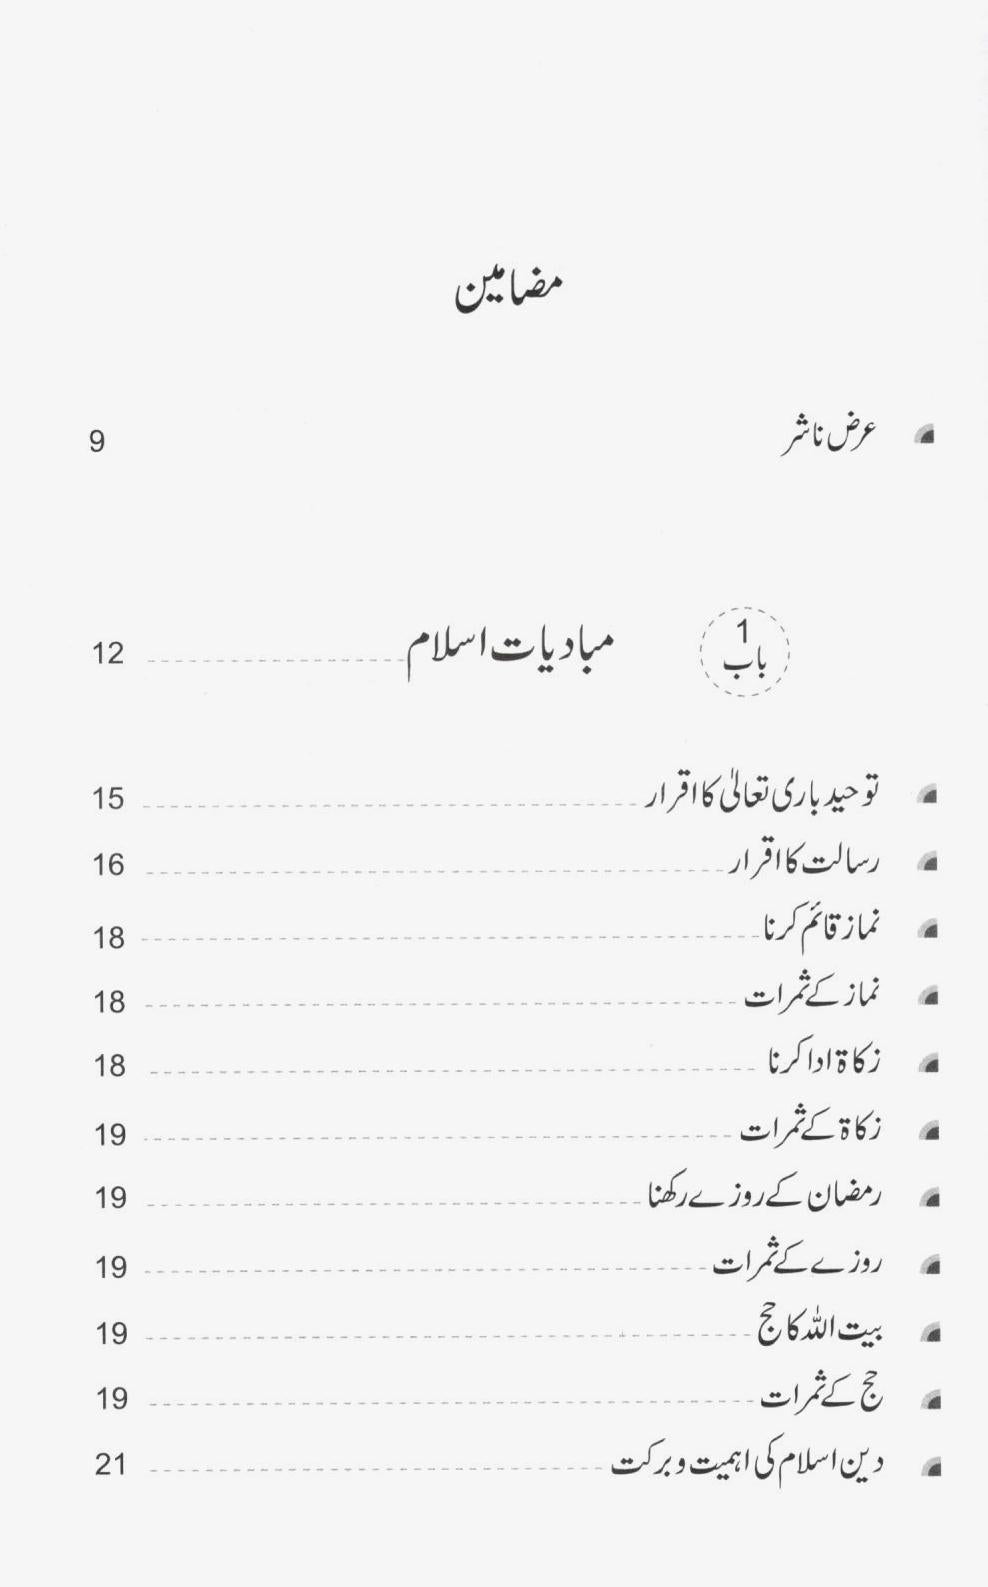 مضامین
عرض ناشر 9
باب 1 مبادیات اسلام 12
توحید باری تعالیٰ کا اقرار 15
رسالت کا اقرار 16
نماز قائم کرنا 18
نماز کے ثمرات 18
زکاۃ ادا کرنا 18
زکاۃ کے ثمرات 19
رمضان کے روزے رکھنا 19
روزے کے ثمرات 19
بیت اللہ کا حج 19
حج کے ثمرات 19
دین اسلام کی اہمیت و برکت 21